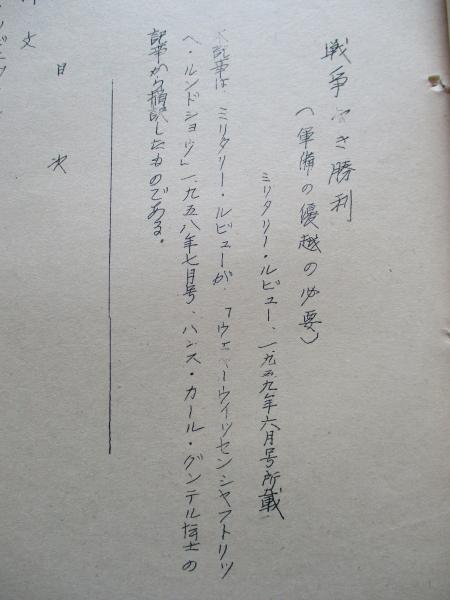 戦争なき勝利
(軍備の優越の必要)
ミリタリー・ルビュー、一九五九年六月号所載
本記事は ミリタリー・ルビューが、「ウェーアウイッセンシヤフトリツ
ヘ・ルンドショウ」一九五八年七月号、ハンス・カール・グンテル博士の
記事から摘訳したものである。
目次
文